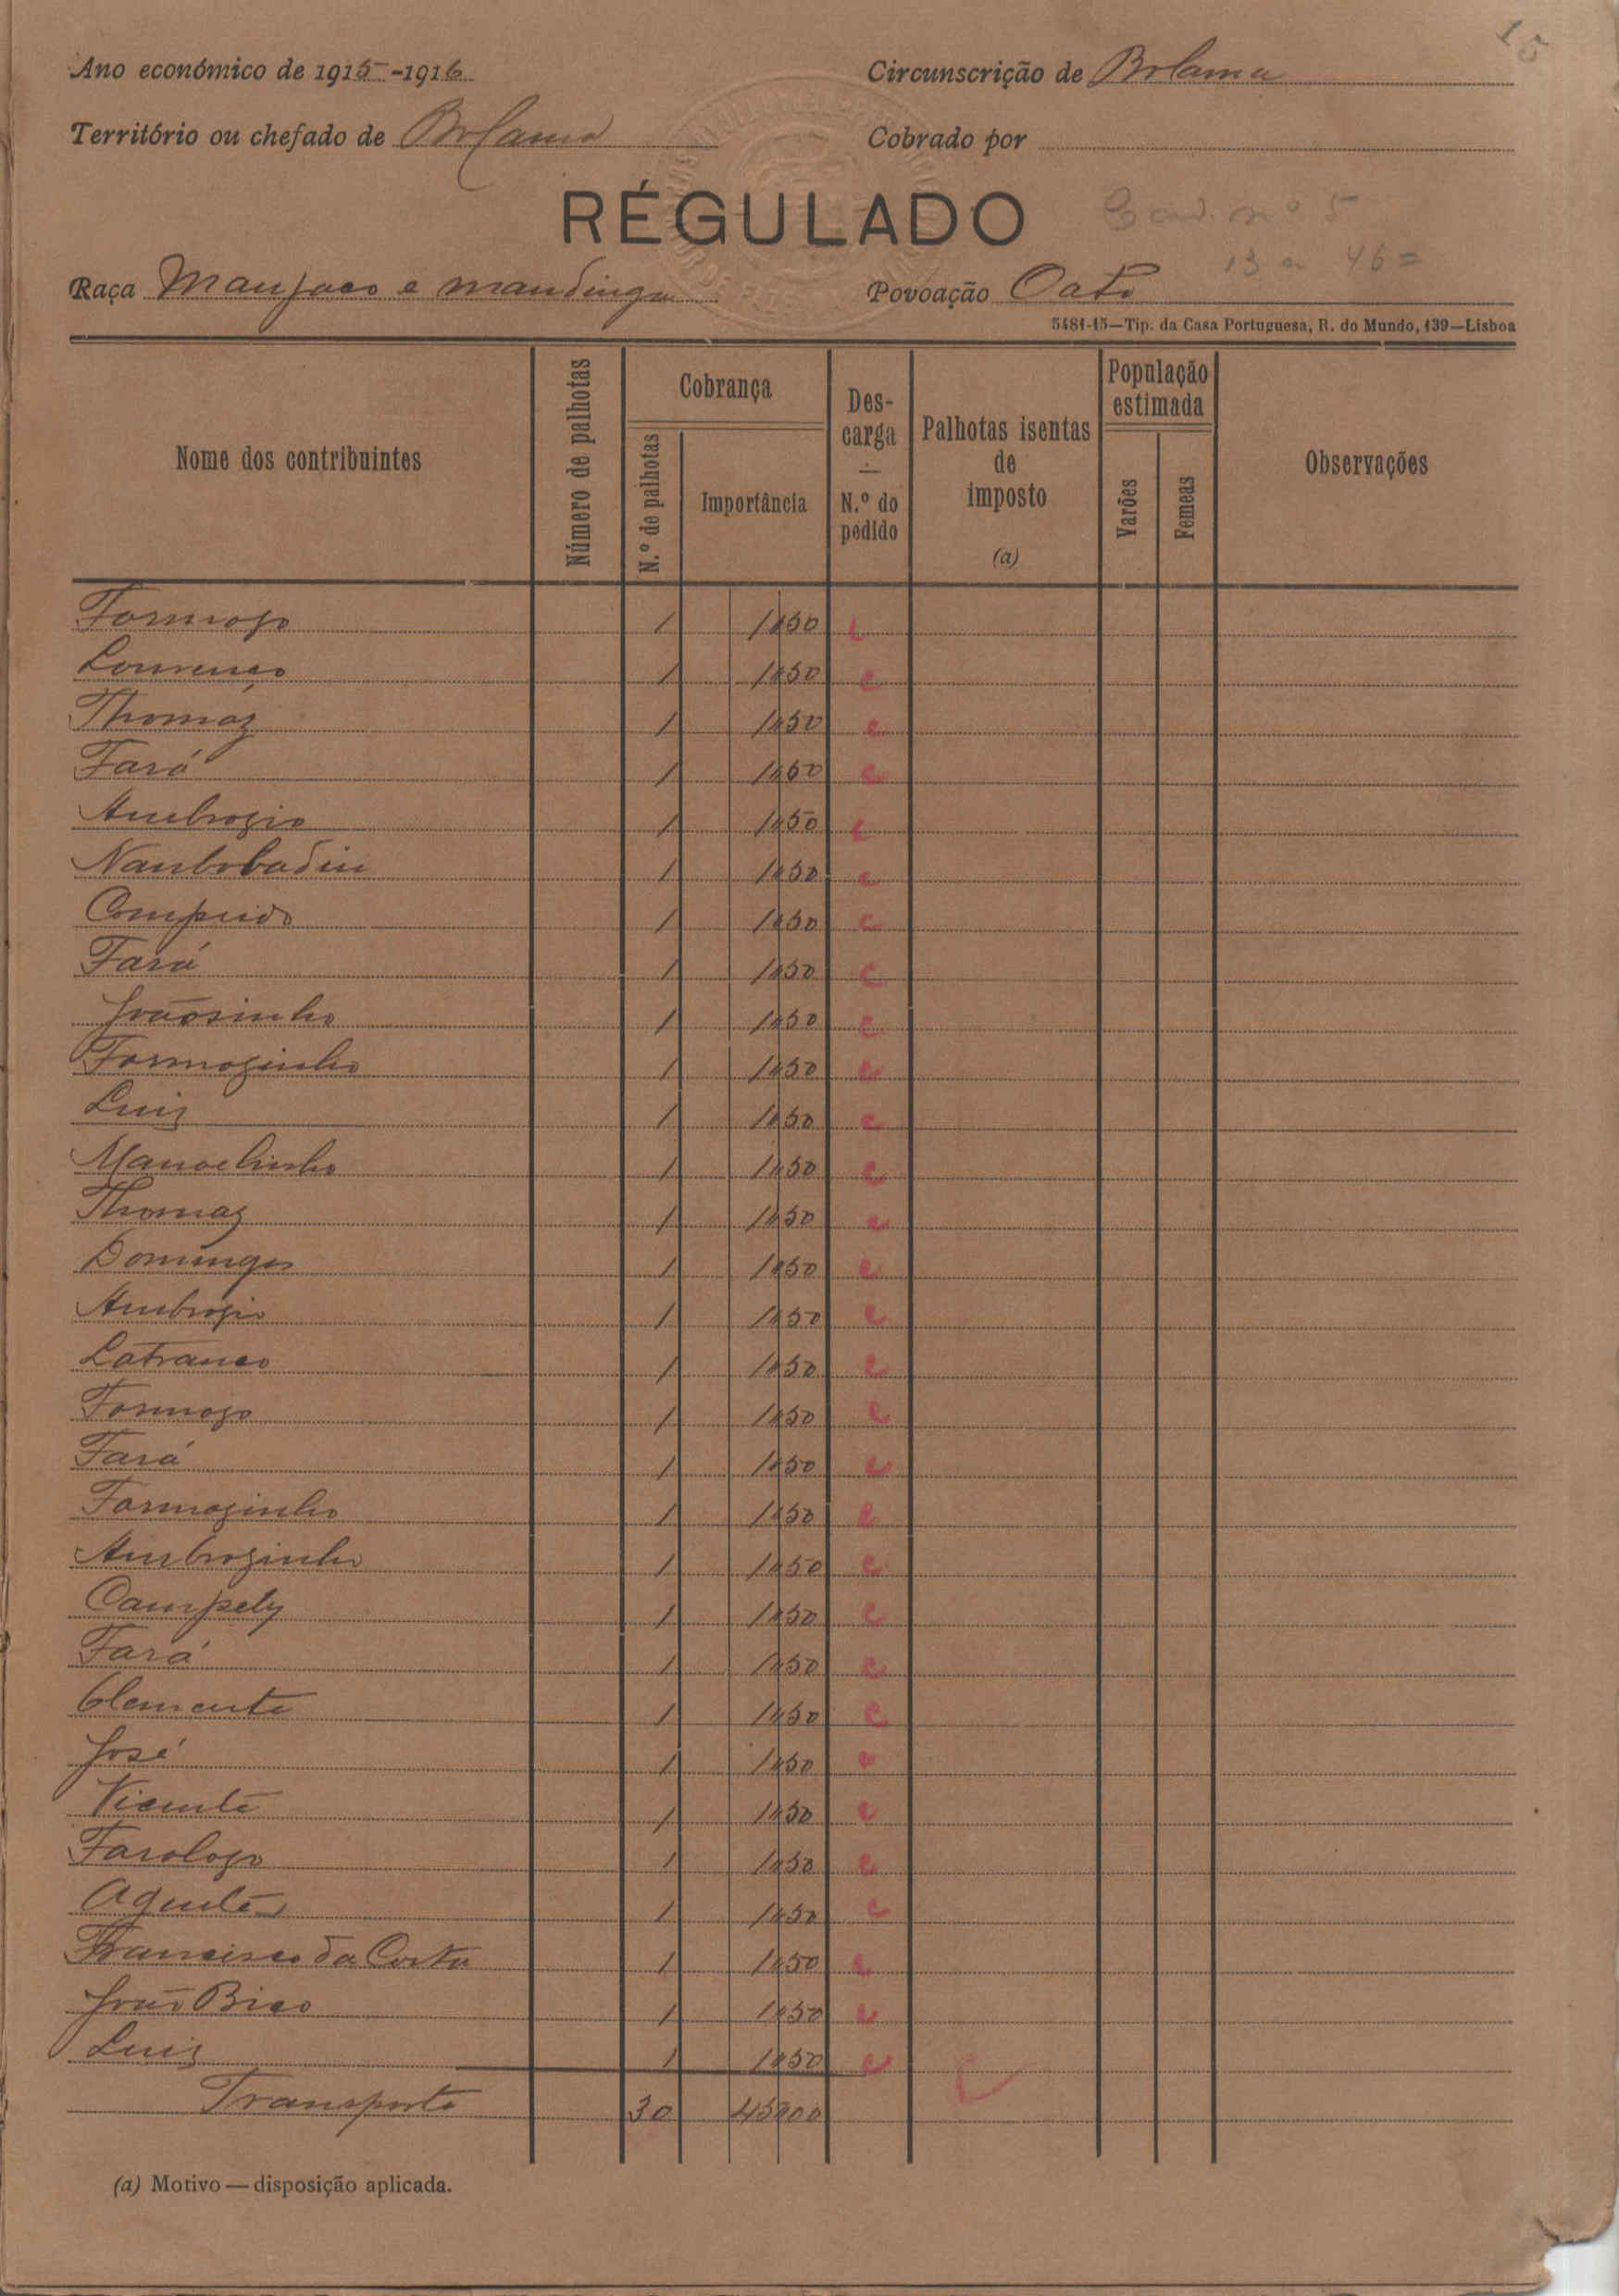 15
Ano económico de 1915-1916
Circunscrição de Bolama
Território ou chefado de Bolama
Cobrado por
RÉGULADO
Cad. nº 5
13 a 46=
Raça Manjaco e mandinga
Povoação Oato
5481-15—Tip. da Casa Portuguesa, R. do Mundo, 139—Lisboa
Nome dos contribuintes
Número de palhotas
Cobrança
N.º de palhotas
Importância
Descarga
—
N.º do pedido
Palhotas isentas de imposto
(a)
População estimada
Varões
Femeas
Observações
Formoso 1 1$50 c
Lourenço 1 1$50 c
Thomaz 1 1$50 c
Fará 1 1$50 c
Ambrozio 1 1$50 c
Nanbobadin 1 1$50 c
Comprido 1 1$50 c
Fará 1 1$50 c
Joãosinho 1 1$50 c
Formozinho 1 1$50 c
Luiz 1 1$50 c
Manoelinho 1 1$50 c
Thomaz 1 1$50 c
Domingos 1 1$50 c
Ambrozio 1 1$50 c
Latranco 1 1$50 c
Formozo 1 1$50 c
Fará 1 1$50 c
Formozinho 1 1$50 c
Ambrozinho 1 1$50 c
Campely 1 1$50 c
Fará 1 1$50 c
Clemente 1 1$50 c
José 1 1$50 c
Vicente 1 1$50 c
Farologo 1 1$50 c
Aquules 1 1$50 c
Francisco da Costa 1 1$50 c
João Bico 1 1$50 c
Luiz 1 1$50 c
Transporte 30 45$00
(a) Motivo—disposição aplicada.